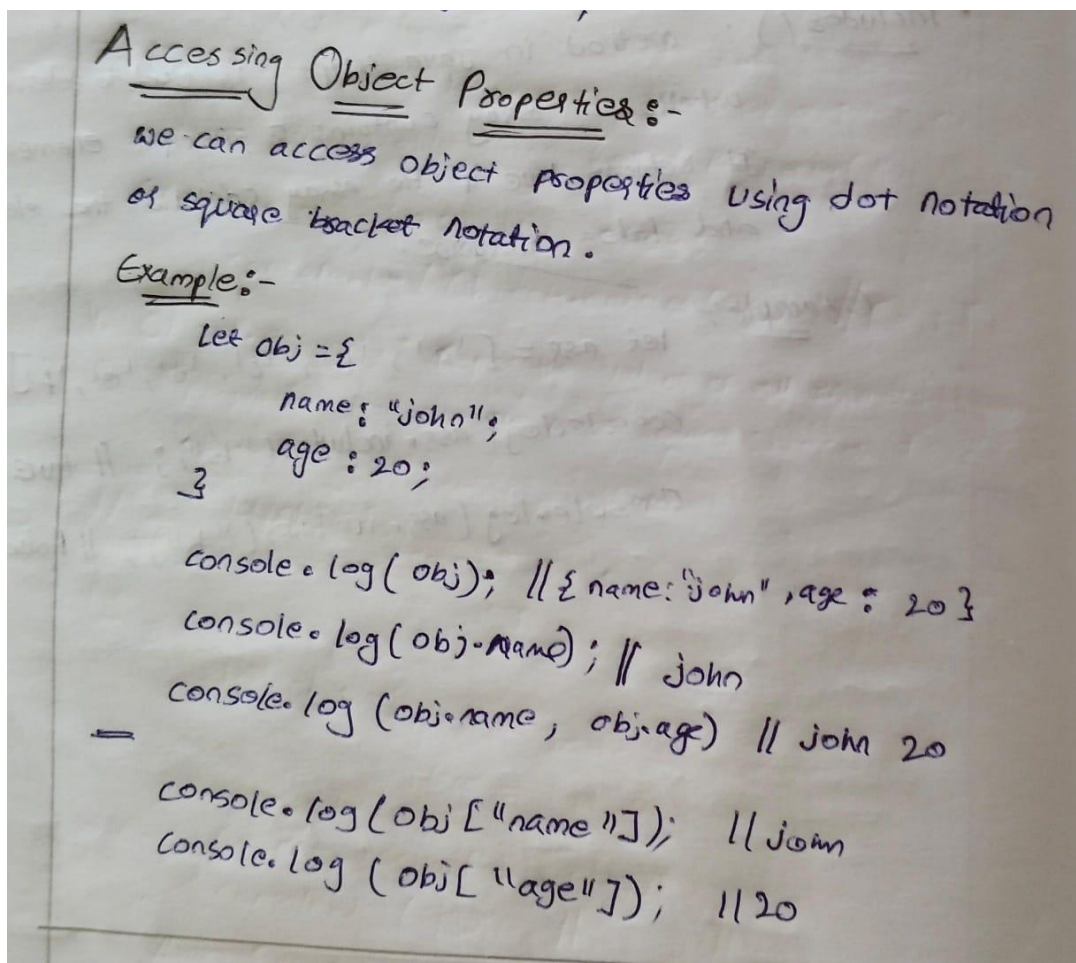 Accessing Object Properties:-
we can access object properties using dot notation
or square bracket notation.
Example:-
Let obj = {
name: "john";
age: 20;
}
console.log(obj); // { name: "john", age: 20 }
console.log(obj.name); // john
console.log (obj.name, obj.age) // john 20
console.log(obj ["name"]); // john
console.log (obj["age"]); // 20